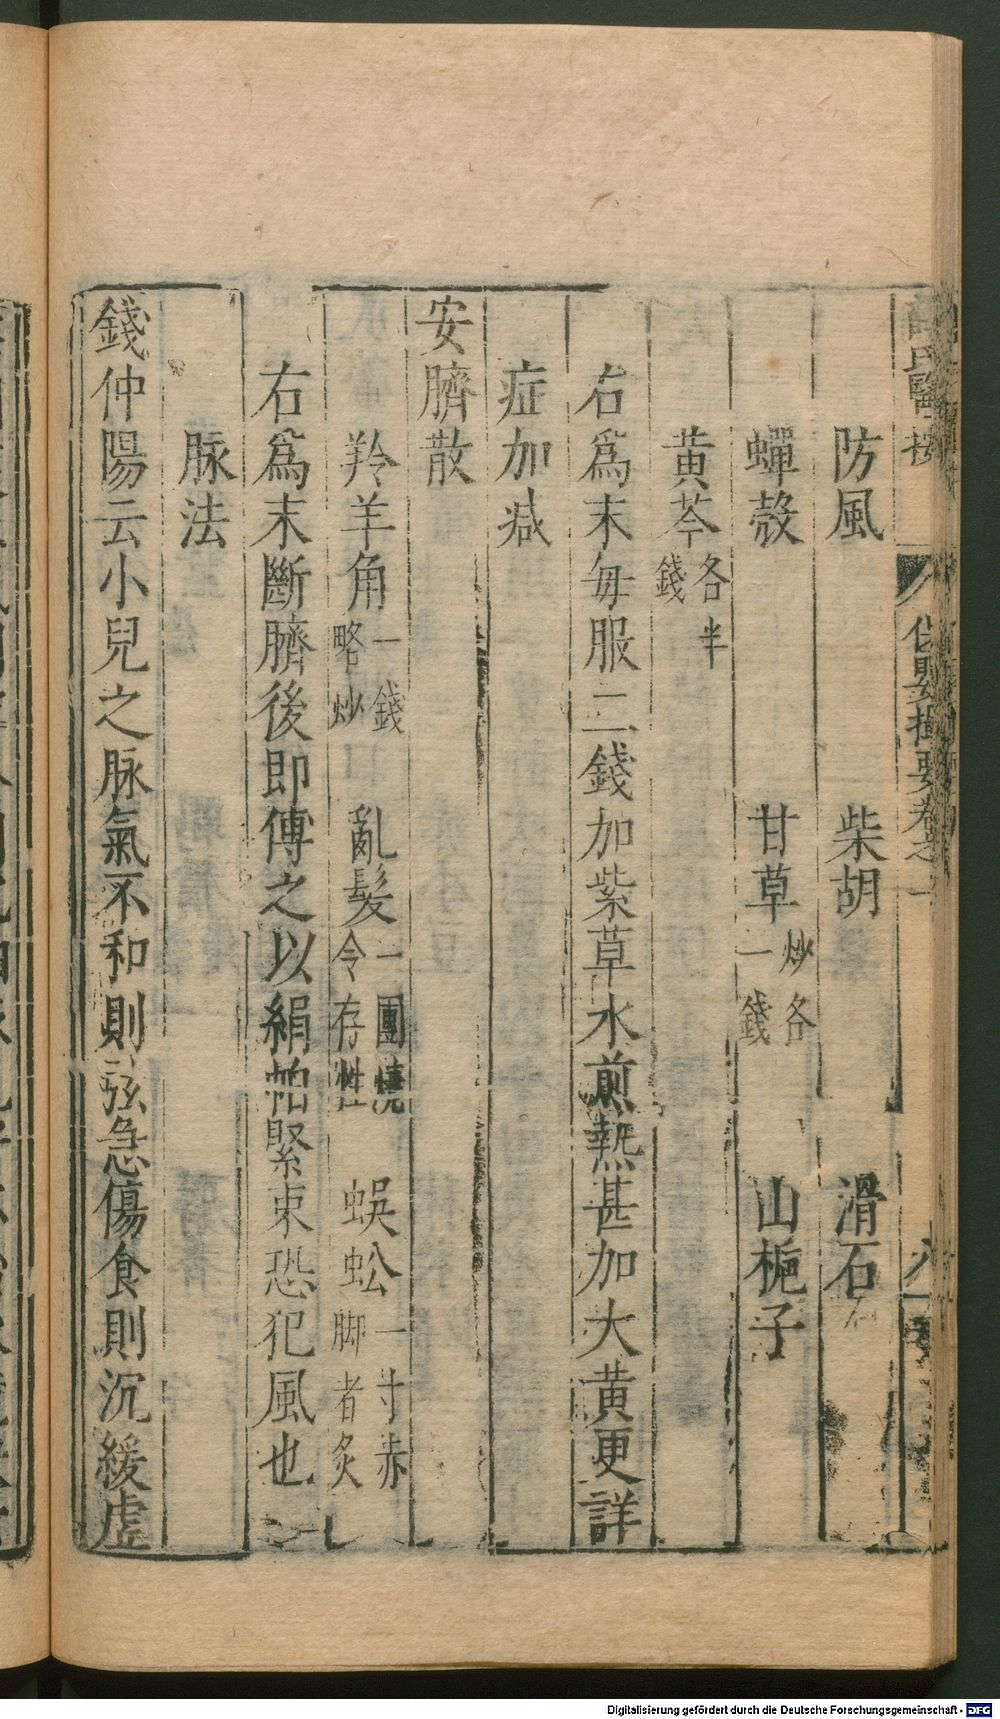 氏醫按 保嬰撮要卷之一 八
防風 柴胡 滑石
蟬殼 甘草炒各一錢 山梔子
黄芩各半錢
右爲末每服二錢加紫草水煎熱甚加大黄更詳
症加减
安臍散
羚羊角一錢略炒 亂髮一團燒令存性 蜈蚣一寸赤脚者炙
右爲末斷臍後即傅之以絹帕緊束恐犯風也
脉法
錢仲陽云小兒之脉氣不和則弦急傷食則沉緩虚
Digitalisierung gefördert durch die Deutsche Forschungsgemeinschaft - DFG